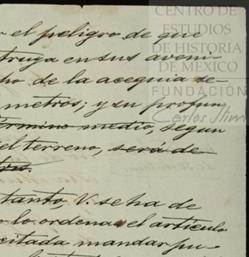 CENTRO DE
ESTUDIOS
DE HISTORIA
DE MEXICO
FUNDACIÓN
Carlos Slim
el peligro de que
truya en sus aveni
ho de la acequia de
metros; y su profun
término medio, segun
el terreno, será de
tros.
tanto, V. se ha de
lo ordena el artículo
citada mandar pu